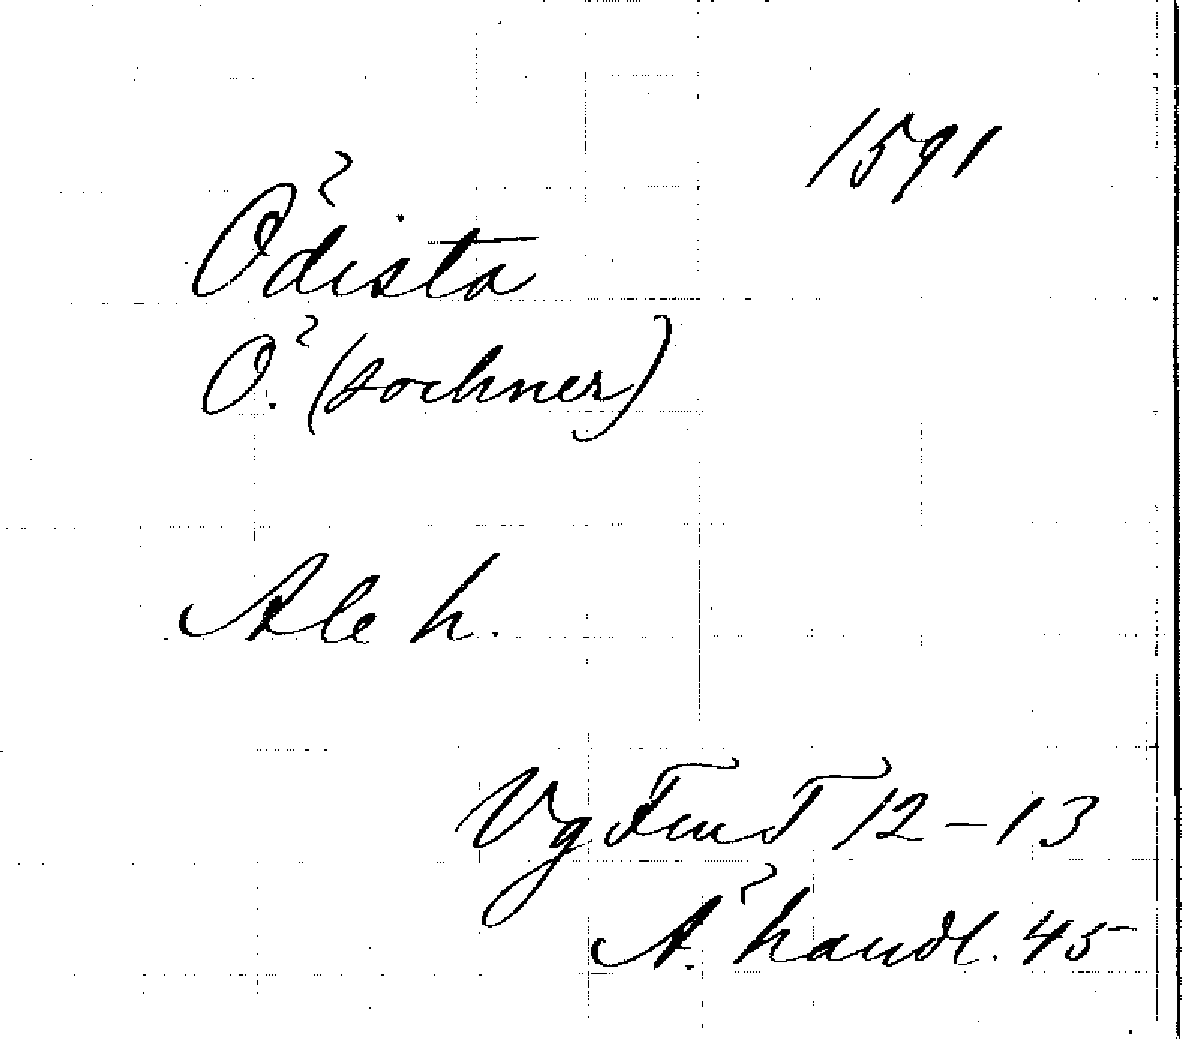 1591
Ödista
Ö. (sochner)
Ale h.
Vg FmT 12-13
Ä. handl. 45